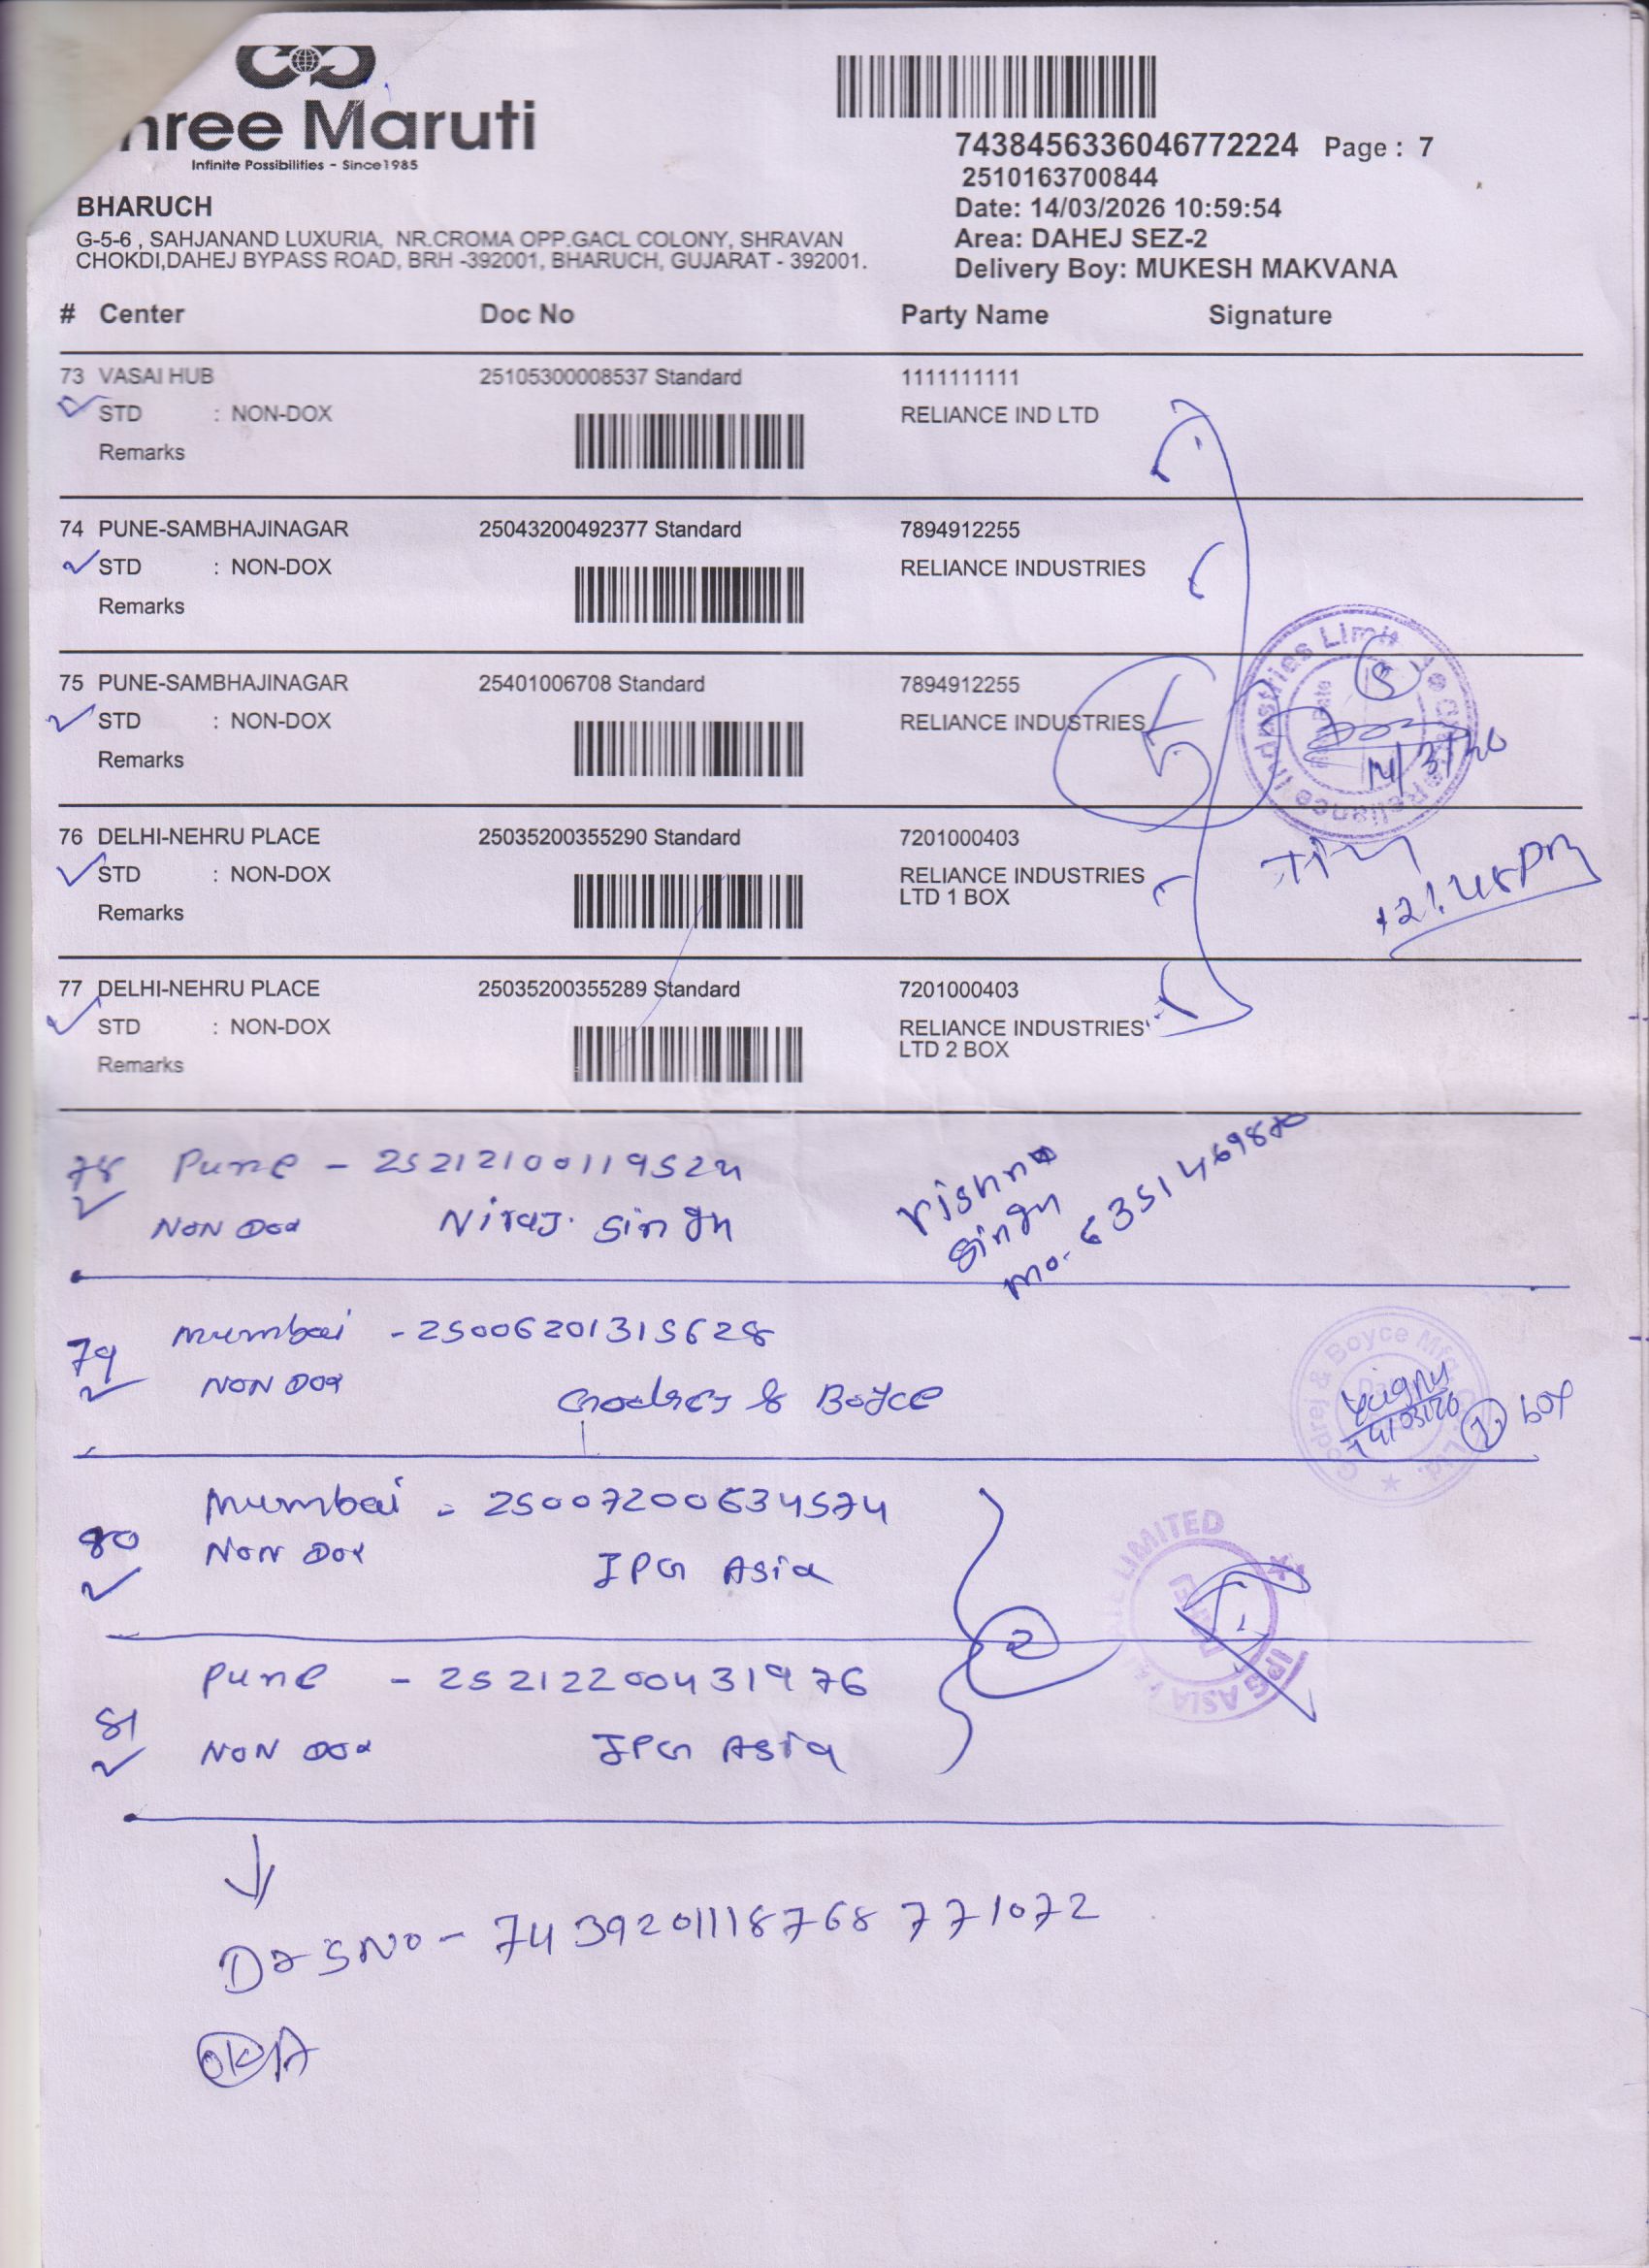 hree Maruti
Infinite Possibilities - Since1985
7438456336046772224 Page : 7
2510163700844
BHARUCH
Date: 14/03/2026 10:59:54
G-5-6 , SAHJANAND LUXURIA, NR.CROMA OPP.GACL COLONY, SHRAVAN
Area: DAHEJ SEZ-2
CHOKDI,DAHEJ BYPASS ROAD, BRH -392001, BHARUCH, GUJARAT - 392001.
Delivery Boy: MUKESH MAKVANA
# Center Doc No Party Name Signature
73 VASAI HUB 25105300008537 Standard 1111111111
STD : NON-DOX RELIANCE IND LTD
Remarks
74 PUNE-SAMBHAJINAGAR 25043200492377 Standard 7894912255
STD : NON-DOX RELIANCE INDUSTRIES
Remarks
75 PUNE-SAMBHAJINAGAR 25401006708 Standard 7894912255
STD : NON-DOX RELIANCE INDUSTRIES
Remarks
5
Reliance Industries Limit
5
14/3/26
76 DELHI-NEHRU PLACE 25035200355290 Standard 7201000403
STD : NON-DOX RELIANCE INDUSTRIES
LTD 1 BOX
Remarks
12:45PM
77 DELHI-NEHRU PLACE 25035200355289 Standard 7201000403
STD : NON-DOX RELIANCE INDUSTRIES
LTD 2 BOX
Remarks
78 Pune - 25212100119524
NON DOX Niraj Singh
Singh
mo. 6351469870
79 Mumbai - 25006201315628
NON DOX Godrej & Boyce
Godrej & Boyce Mfg. Co. Ltd.
14/03/26
1 box
80 Mumbai - 25007200634574
NON DOX IPG Asia
2
IPG ASIA LIMITED
DAHEJ
81 Pune - 25212200431976
NON DOX IPG Asia
DRSNO - 7439201118768771072